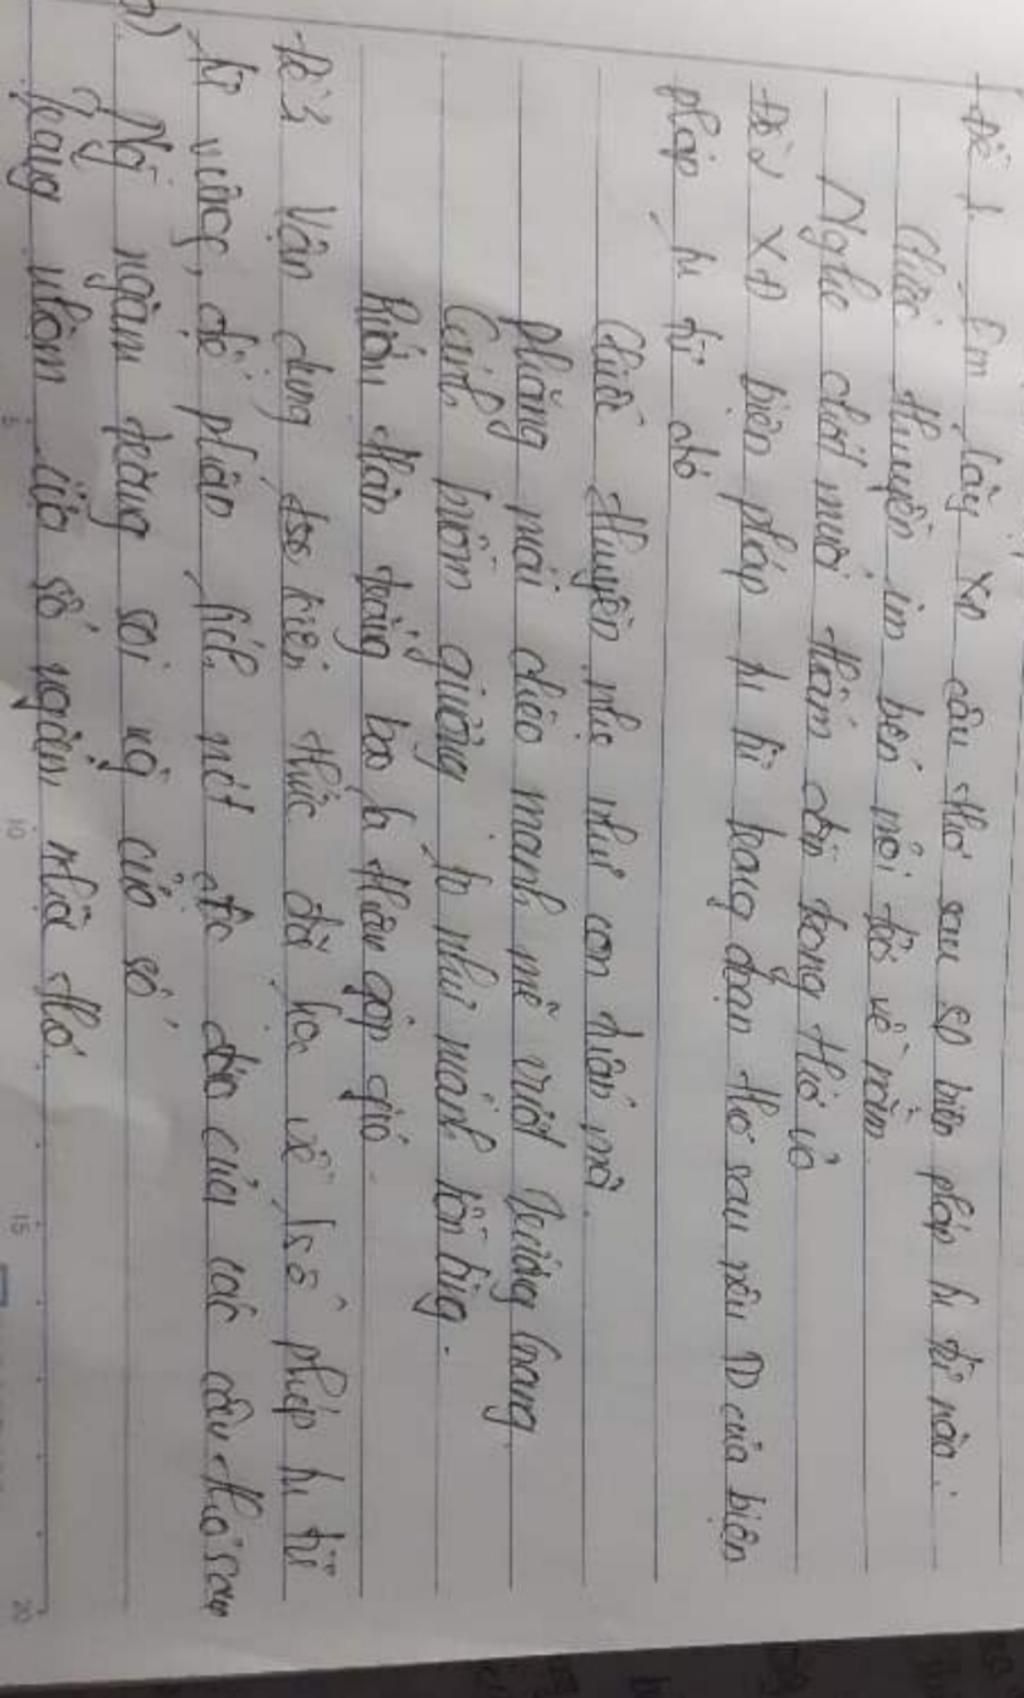 Đề 1. Em hãy XĐ câu thơ sau SD biện pháp tu từ nào:
Chiếc thuyền im bến mỏi trở về nằm
Nghe chất muối thấm dần trong thớ vỏ
Đề 2 XĐ biện pháp tu từ trong đoạn thơ sau nêu TD của biện
pháp tu từ đó
Chiếc thuyền nhẹ như con tuấn mã.
Phăng mái chèo mạnh mẽ vượt trường giang
Cánh buồm giương to như mảnh hồn làng.
Rướn thân trắng bao la thâu góp gió.
Đề 3 Vận dụng kiến thức đã học về 1 số phép tu từ
từ vựng, để phân tích nét độc đáo của các câu thơ sau
a)
Ng ngắm trăng soi ng cửa sổ
Trăng nhòm cửa sổ ngắm nhà thơ.
5 10 15 20